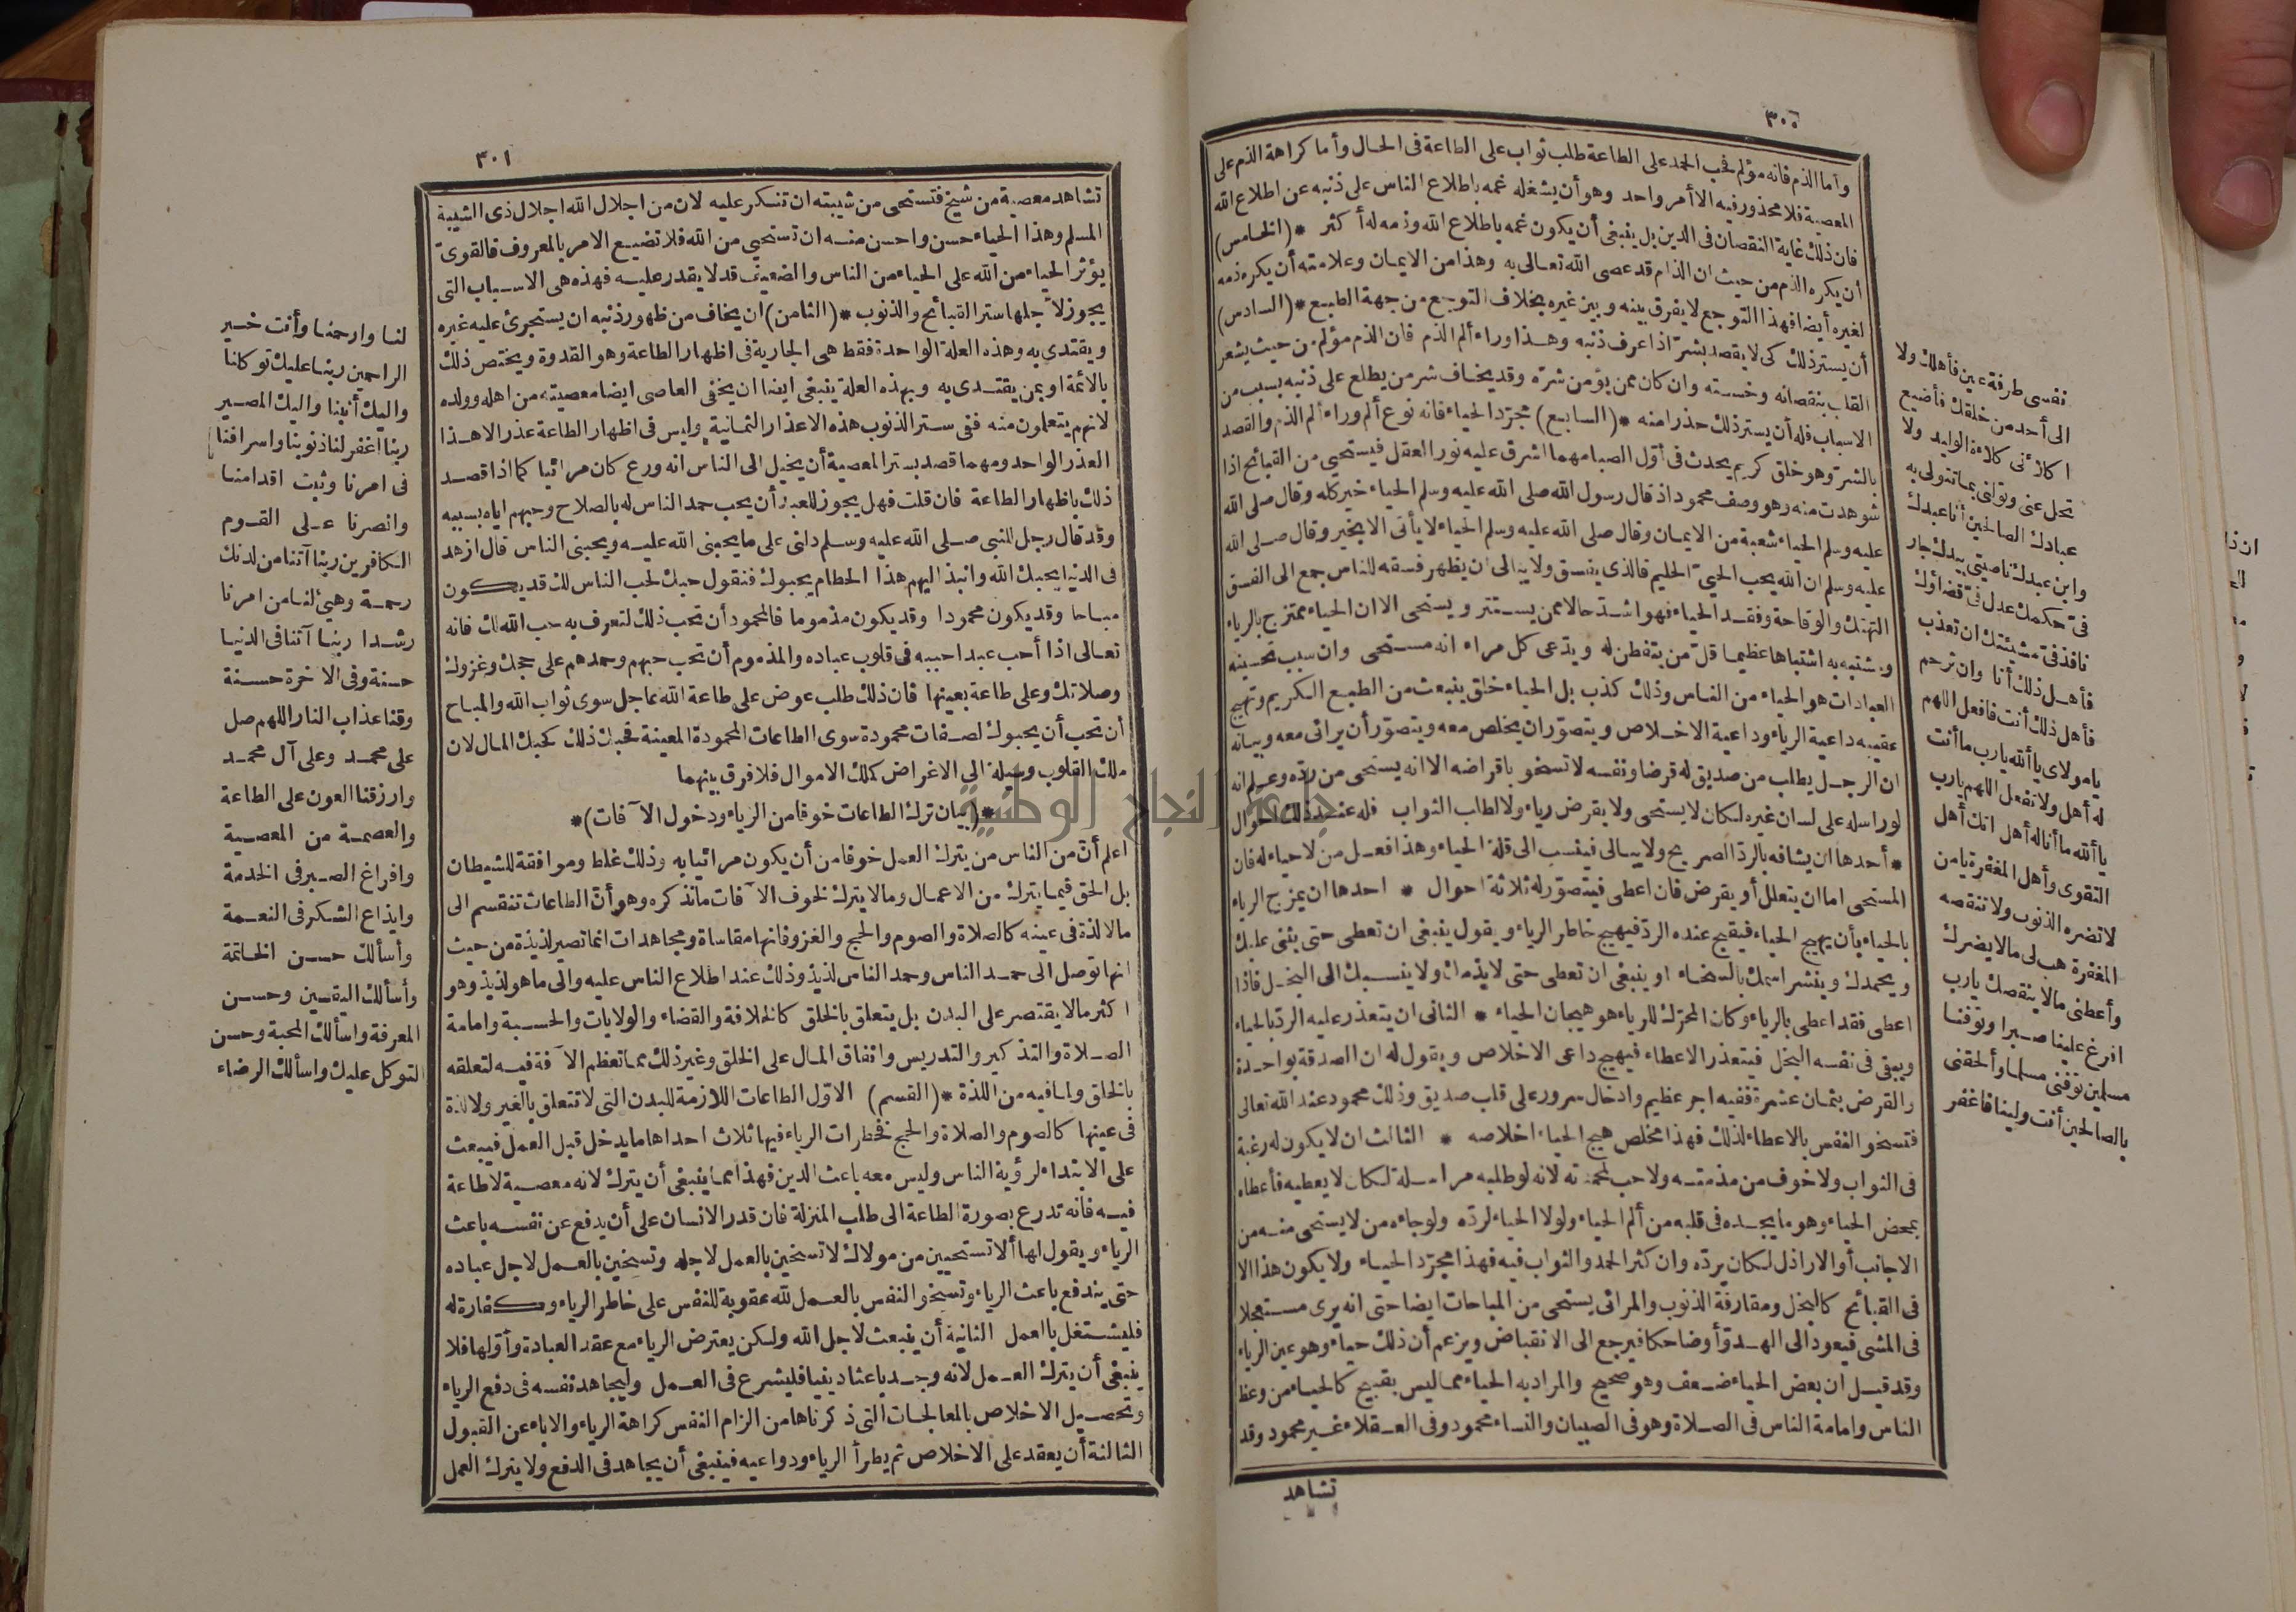 ٣٠٠
وأما الذم فانه مؤلم فحب الحمد على الطاعة طلب ثواب على الطاعة فى الحال وأما كراهة الذم على
المعصية فلا محذور فيه الا أمر واحد وهو أن يشغله غمه باطلاع الناس على ذنبه عن اطلاع الله
فان ذلك غاية النقصان فى الدين بل ينبغى أن يكون غمه باطلاع الله وذمه له أكثر * (الخامس)
أن يكره الذم من حيث ان الذام قد عصى الله تعالى به وهذا من الايمان وعلامته أن يكره ذمه
لغيره أيضا فهذا التوجع لا يفرق بينه وبين غيره بخلاف التوجع من جهة الطبع * (السادس)
أن يستر ذلك كى لا يقصد بشر اذا عرف ذنبه وهذا وراء ألم الذم فان الذم مؤلم من حيث يشعر
القلب بنقصانه وخسته وان كان ممن يؤمن شره وقد يخاف شر من يطلع على ذنبه بسبب من
الاسباب فله أن يستر ذلك حذرا منه * (السابع) مجرد الحياء فانه نوع ألم وراء ألم الذم والقصد
بالشر وهو خلق كريم يحدث فى أول الصبا مهما اشرق عليه نور العقل فيستحي من القبائح اذا
شوهدت منه وهو وصف محمود اذ قال رسول الله صلى الله عليه وسلم الحياء خير كله وقال صلى الله
عليه وسلم الحياء شعبة من الايمان وقال صلى الله عليه وسلم الحياء لا يأتى الا بخير وقال صلى الله
عليه وسلم ان الله يحب الحيي الحليم فالذى يفسق ولا يبالى ان يظهر فسقه للناس جمع الى الفسق
التهتك والوقاحة وفقد الحياء فهو اشد حالا ممن يستتر ويستحى الا ان الحياء ممتزج بالرياء
ومشتبه به اشتباها عظيما قل من يتفطن له ويدعى كل مراء انه مستحى وان سبب تحسينه
العبادات هو الحياء من الناس وذلك كذب بل الحياء خلق ينبعث من الطبع الكريم وتهيج
عقيبه داعية الرياء وداعية الاخلاص ويتصور ان يخلص معه ويتصور أن يرائى معه وبيانه
ان الرجل يطلب من صديق له قرضا ونفسه لا تسخو باقراضه الا انه يستحى من رده وعلم انه
لو راسله على لسان غيره لكان لا يستحى ولا يقرض رياء ولا لطلب الثواب فله عند ذلك احوال
* أحدها ان يشافه بالرد الصريح ولا يبالى فينسب الى قلة الحياء وهذا فعل من لا حياء له فان
المستحى اما ان يتعلل أو يقرض فان اعطى فيتصور له ثلاثة احوال * احدها ان يمزج الرياء
بالحياء بأن يهيج الحياء فيقبح عنده الرد فيهيج خاطر الرياء ويقول ينبغى ان تعطى حتى يثنى عليك
ويحمدك وينشر اسمك بالسخاء او ينبغى ان تعطى حتى لا يذمك ولا ينسبك الى البخل فاذا
اعطى فقد اعطى بالرياء وكان المحرك للرياء هو هيجان الحياء * الثانى ان يتعذر عليه الرد بالحياء
ويبقى فى نفسه البخل فيتعذر الاعطاء فيهيج داعى الاخلاص ويقول له ان الصدقة بواحدة
والقرض بثمان عشرة ففيه اجر عظيم وادخال سرور على قلب صديق وذلك محمود عند الله تعالى
فتسخو النفس بالاعطاء لذلك فهذا مخلص هيج الحياء اخلاصه * الثالث ان لا يكون له رغبة
فى الثواب ولا خوف من مذمته ولا حب لمحمدته لانه لو طلبه مراسلة لكان لا يعطيه فأعطاه
بمحض الحياء وهو ما يجده فى قلبه من ألم الحياء ولولا الحياء لرده ولو جاءه من لا يستحى منه من
الاجانب أو الاراذل لكان يرده وان كثر الحمد والثواب فيه فهذا مجرد الحياء ولا يكون هذا الا
فى القبائح كالبخل ومقارفة الذنوب والمرائى يستحى من المباحات ايضا حتى انه يرى مستعجلا
فى المشى فيعود الى الهدو أو ضاحكا فيرجع الى الانقباض ويزعم أن ذلك حياء وهو عين الرياء
وقد قيل ان بعض الحياء ضعف وهو صحيح والمراد به الحياء مما ليس بقبيح كالحياء من وعظ
الناس وامامة الناس فى الصلاة وهو فى الصبيان والنساء محمود وفى العقلاء غير محمود وقد
تشاهد
نفسى طرفة عين فأهلك ولا
الى أحد من خلقك فأضيع
اكلأنى كلاءة الوليد ولا
تخل عنى وتولنى بما تتولى به
عبادك الصالحين أنا عبدك
وابن عبدك ناصيتى بيدك جار
فى حكمك عدل فى قضاؤك
نافذ فى مشيئتك ان تعذب
فأهل ذلك أنا وان ترحم
فأهل ذلك أنت فافعل اللهم
يا مولاى يا ألله يا رب ما أنت
له أهل ولا تفعل اللهم يا رب
يا ألله ما أنا له أهل انك أهل
التقوى وأهل المغفرة يا من
لا تضره الذنوب ولا تنقصه
المغفرة هب لى ما لا يضرك
وأعطنى ما لا ينقصك يا رب
افرغ علينا صبرا وتوفنا
مسلمين توفنى مسلما وألحقنى
بالصالحين أنت ولينا فاغفر
٣٠١
تشاهد معصية من شيخ فتستحى من شيبته ان تنكر عليه لان من اجلال الله اجلال ذى الشيبة
المسلم وهذا الحياء حسن واحسن منه ان تستحيي من الله فلا تضيع الامر بالمعروف فالقوى
يؤثر الحياء من الله على الحياء من الناس والضعيف قد لا يقدر عليه فهذه هى الاسباب التى
يجوز لاجلها ستر القبائح والذنوب * (الثامن) ان يخاف من ظهور ذنبه ان يستجرئ عليه غيره
ويقتدى به وهذه العلة الواحدة فقط هى الجارية فى اظهار الطاعة وهو القدوة ويختص ذلك
بالائمة او بمن يقتدى به وبهذه العلة ينبغى ايضا ان يخفى العاصى ايضا معصيته من اهله وولده
لانهم يتعلمون منه ففى ستر الذنوب هذه الاعذار الثمانية وليس فى اظهار الطاعة عذر الا هذا
العذر الواحد ومهما قصد بستر المعصية أن يخيل الى الناس انه ورع كان مرائيا كما اذا قصد
ذلك باظهار الطاعة فان قلت فهل يجوز للعبد أن يحب حمد الناس له بالصلاح وحبهم اياه بسببه
وقد قال رجل للنبى صلى الله عليه وسلم دلنى على ما يحبنى الله عليه ويحبنى الناس قال ازهد
فى الدنيا يحبك الله وانبذ اليهم هذا الحطام يحبوك فنقول حبك لحب الناس لك قد يكون
مباحا وقد يكون محمودا وقد يكون مذموما فالمحمود أن تحب ذلك لتعرف به حب الله لك فانه
تعالى اذا أحب عبدا حببه فى قلوب عباده والمذموم أن تحب حبهم وحمدهم على حجك وغزوك
وصلاتك وعلى طاعة بعينها فان ذلك طلب عوض على طاعة الله عاجل سوى ثواب الله والمباح
أن تحب أن يحبوك لصفات محمودة سوى الطاعات المحمودة المعينة فحبك ذلك كحبك المال لان
ملك القلوب وسيلة الى الاغراض كملك الاموال فلا فرق بينهما
*(بيان ترك الطاعات خوفا من الرياء ودخول الآفات)*
اعلم أن من الناس من يترك العمل خوفا من أن يكون مرائيا به وذلك غلط وموافقة للشيطان
بل الحق فيما يترك من الاعمال وما لا يترك لخوف الآفات ما نذكره وهو أن الطاعات تنقسم الى
ما لا لذة فى عينه كالصلاة والصوم والحج والغزو فانها مقاساة ومجاهدات انما تصير لذيذة من حيث
انها توصل الى حمد الناس وحمد الناس لذيذ وذلك عند اطلاع الناس عليه والى ما هو لذيذ وهو
اكثر ما لا يقتصر على البدن بل يتعلق بالخلق كالخلافة والقضاء والولايات والحسبة وامامة
الصلاة والتذكير والتدريس وانفاق المال على الخلق وغير ذلك مما تعظم الآفة فيه لتعلقه
بالخلق ولما فيه من اللذة * (القسم) الاول الطاعات اللازمة للبدن التى لا تتعلق بالغير ولا لذة
فى عينها كالصوم والصلاة والحج فخطرات الرياء فيها ثلاث احداها ما يدخل قبل العمل فيبعث
على الابتداء لرؤية الناس وليس معه باعث الدين فهذا مما ينبغى أن يترك لانه معصية لا طاعة
فيه فانه تدرع بصورة الطاعة الى طلب المنزلة فان قدر الانسان على أن يدفع عن نفسه باعث
الرياء ويقول لها ألا تستحيين من مولاك لا تسخين بالعمل لاجله وتسخين بالعمل لاجل عباده
حتى يندفع باعث الرياء وتسخو النفس بالعمل لله عقوبة للنفس على خاطر الرياء وكفارة له
فليشتغل بالعمل الثانية أن ينبعث لاجل الله ولكن يعترض الرياء مع عقد العبادة وأولها فلا
ينبغى أن يترك العمل لانه وجد باعثا دينيا فليشرع فى العمل وليجاهد نفسه فى دفع الرياء
وتحصيل الاخلاص بالمعالجات التى ذكرناها من الزام النفس كراهة الرياء والاباء عن القبول
الثالثة أن يعقد على الاخلاص ثم يطرأ الرياء ودواعيه فينبغى أن يجاهد فى الدفع ولا يترك العمل
لنا وارحمنا وأنت خير
الراحمين ربنا عليك توكلنا
واليك أنبنا واليك المصير
ربنا اغفر لنا ذنوبنا واسرافنا
فى امرنا وثبت اقدامنا
وانصرنا على القوم
الكافرين ربنا آتنا من لدنك
رحمة وهيئ لنا من امرنا
رشدا ربنا آتنا فى الدنيا
حسنة وفى الآخرة حسنة
وقنا عذاب النار اللهم صل
على محمد وعلى آل محمد
وارزقنا العون على الطاعة
والعصمة من المعصية
وافراغ الصبر فى الخدمة
وايذاع الشكر فى النعمة
وأسألك حسن الخاتمة
وأسألك اليقين وحسن
المعرفة واسألك المحبة وحسن
التوكل عليك واسألك الرضاء
جامعة النجاح الوطنية